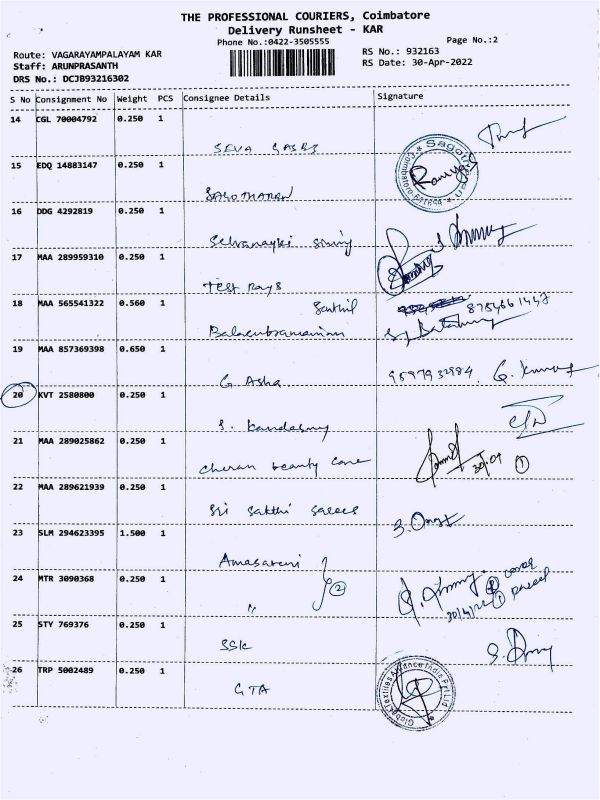 THE PROFESSIONAL COURIERS, Coimbatore
Delivery Runsheet - KAR
Phone No.:0422-3505555
Page No.:2
Route: VAGARAYAMPALAYAM KAR
Staff: ARUNPRASANTH
DRS No.: DCJB93216302
RS No.: 932163
RS Date: 30-Apr-2022
S No Consignment No Weight PCS Consignee Details Signature
14 CGL 70004792 0.250 1
SEVA GASES
15 EDQ 14883147 0.250 1
16 DDG 4292819 0.250 1
17 MAA 289959310 0.250 1
Test Rays
18 MAA 565541322 0.560 1 Senthil
Balasubramanian
19 MAA 857369398 0.650 1
G. Asha 9597932984.
20 KVT 2580800 0.250 1
21 MAA 289025862 0.250 1
cheran beauty care 30.04 1
22 MAA 289621939 0.250 1
Sri Sakthi Sarees
23 SLM 294623395 1.500 1
24 MTR 3090368 0.250 1
" 2 30/4/22
25 STY 769376 0.250 1
SSK
26 TRP 5002489 0.250 1
GTA
Global Textiles Alliance India Pvt Ltd